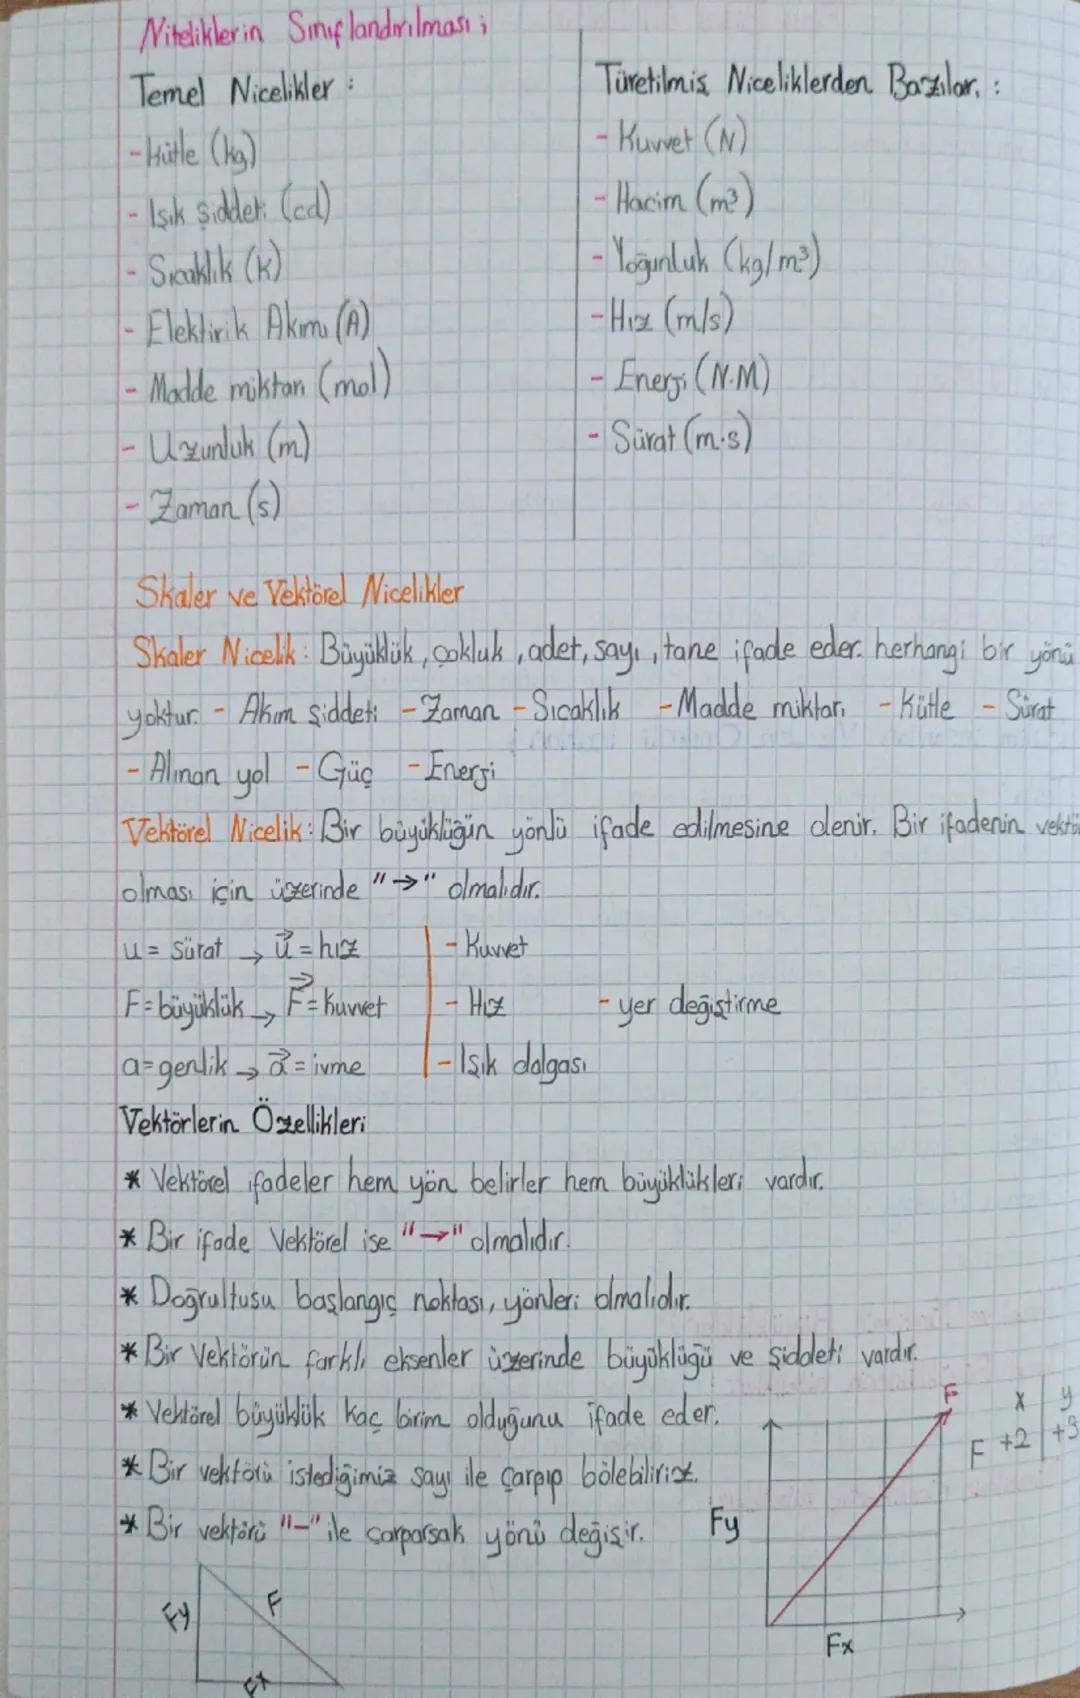 Niteliklerin Sınıflandırılması ;
Temel Nicelikler :
- Kütle (kg)
- Işık şiddeti (cd)
- Sıcaklık (K)
- Elektirik Akımı (A)
- Madde miktarı (mol)
- Uzunluk (m)
- Zaman (s)
Türetilmiş Niceliklerden Bazıları :
- Kuvvet (N)
- Hacim (m³)
- Yoğunluk (kg/m³)
- Hız (m/s)
- Enerji (N.M)
- Sürat (m.s)
Skaler ve Vektörel Nicelikler
Skaler Nicelik : Büyüklük, çokluk, adet, sayı, tane ifade eder. herhangi bir yönü
yoktur. - Akım şiddeti - Zaman - Sıcaklık - Madde miktarı - Kütle - Sürat
- Alınan yol - Güç - Enerji
Vektörel Nicelik : Bir büyüklüğün yönlü ifade edilmesine denir. Bir ifadenin vektö
olması için üzerinde "→" olmalıdır.
u = sürat → u⃗ = hız
F = büyüklük → F⃗ = Kuvvet
a = genlik → a⃗ = ivme
- Kuvvet
- Hız - yer değiştirme
- Işık dalgası
Vektörlerin Özellikleri
* Vektörel ifadeler hem yön belirler hem büyüklükleri vardır.
* Bir ifade Vektörel ise "→" olmalıdır.
* Doğrultusu başlangıç noktası, yönleri olmalıdır.
* Bir Vektörün farklı eksenler üzerinde büyüklüğü ve şiddeti vardır.
* Vektörel büyüklük kaç birim olduğunu ifade eder.
* Bir vektörü istediğimiz sayı ile çarpıp bölebiliriz.
* Bir vektörü "-" ile çarparsak yönü değişir.
F
x y
F +2 +3
Fy
Fx
Fy
F
Fx